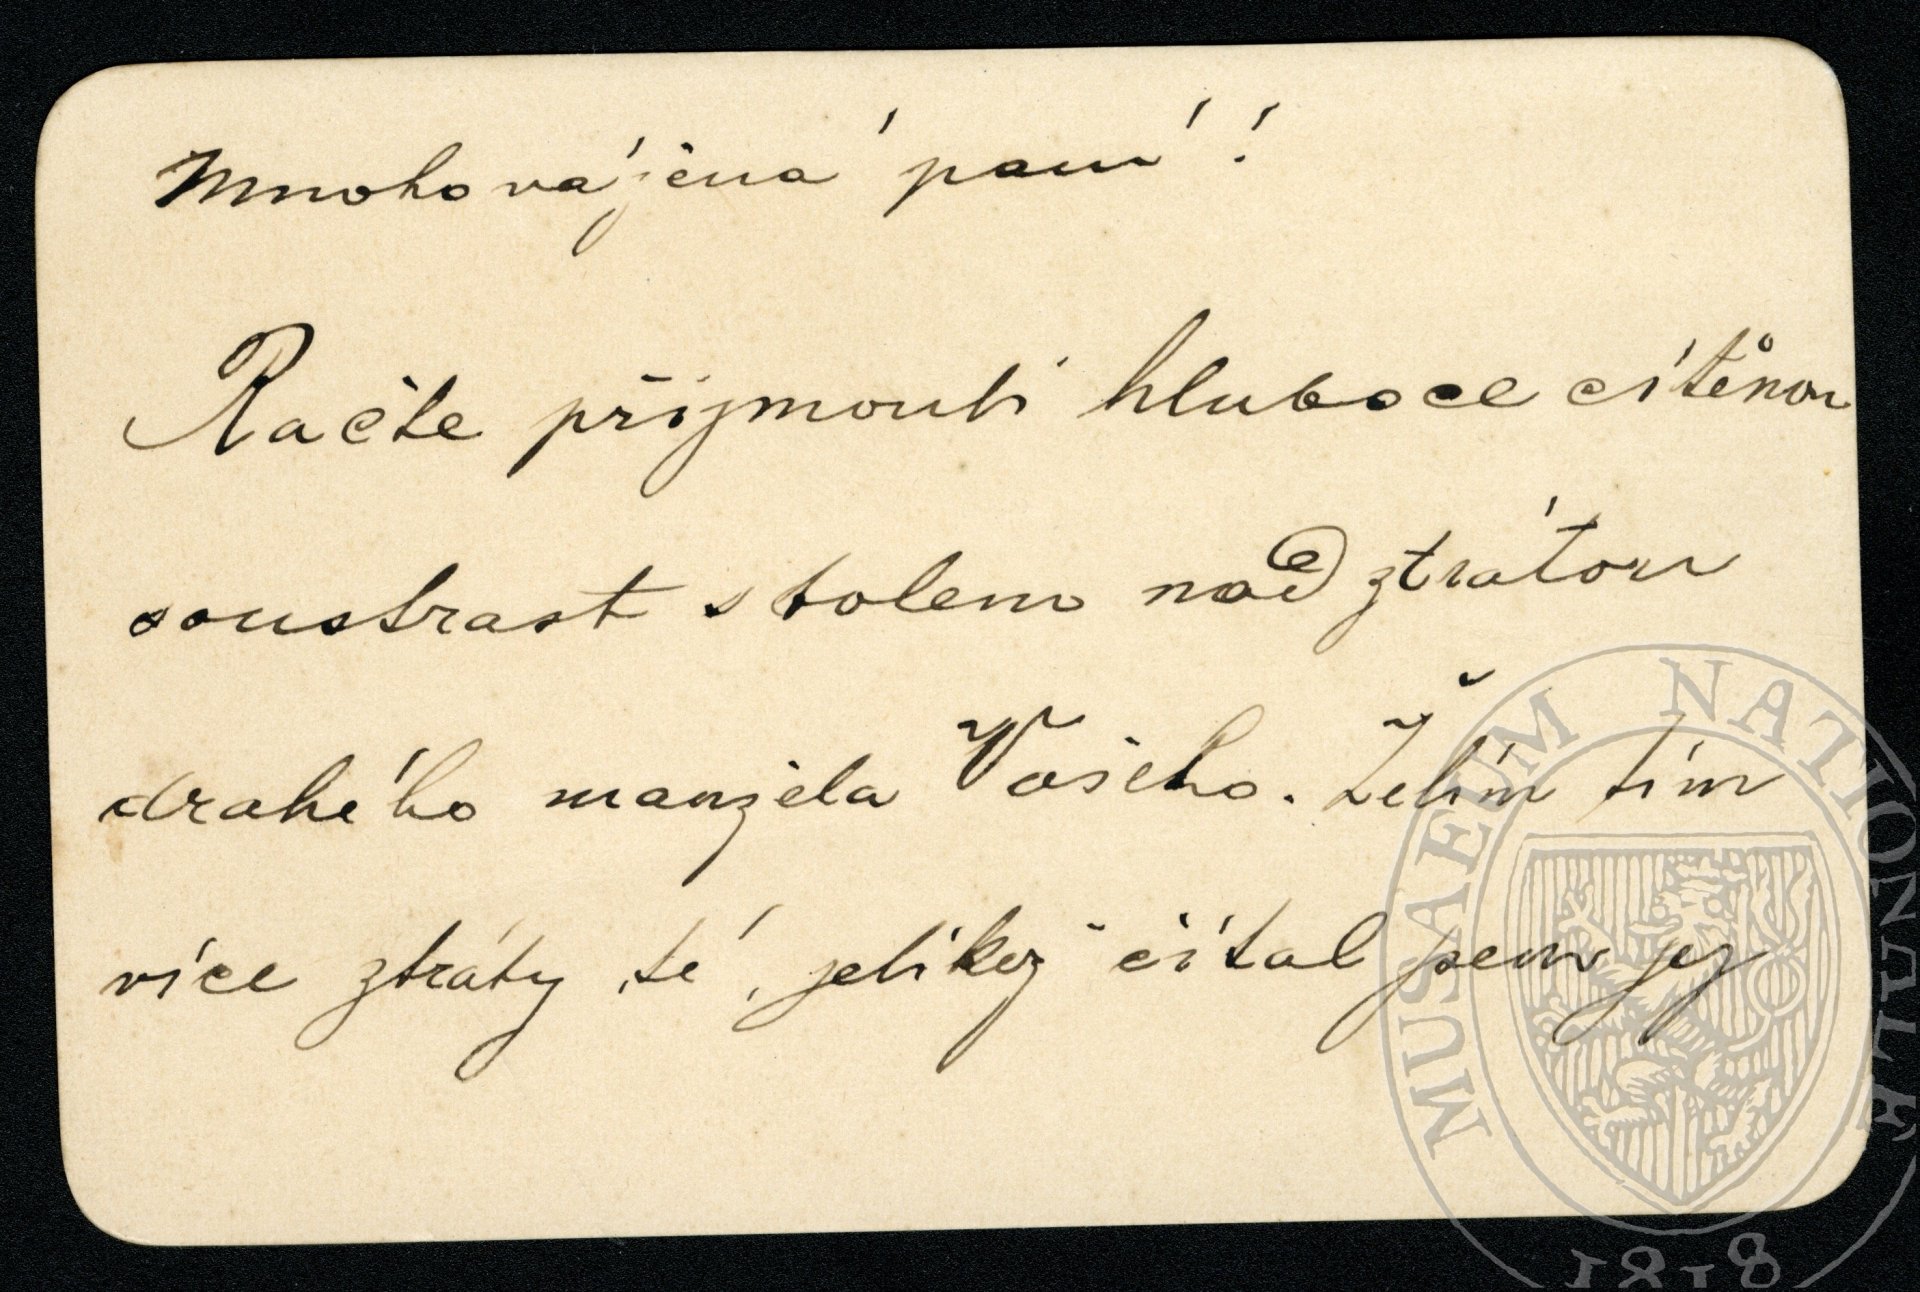 Mnohovážená paní!
Račte přijmouti hluboce cítěnou
soustrast s bolem nad ztrátou
drahého manžela Vašeho. Želím tím
více ztráty té, jelikož čítal jsem jej
MUSAEUM NATIONALE
1818